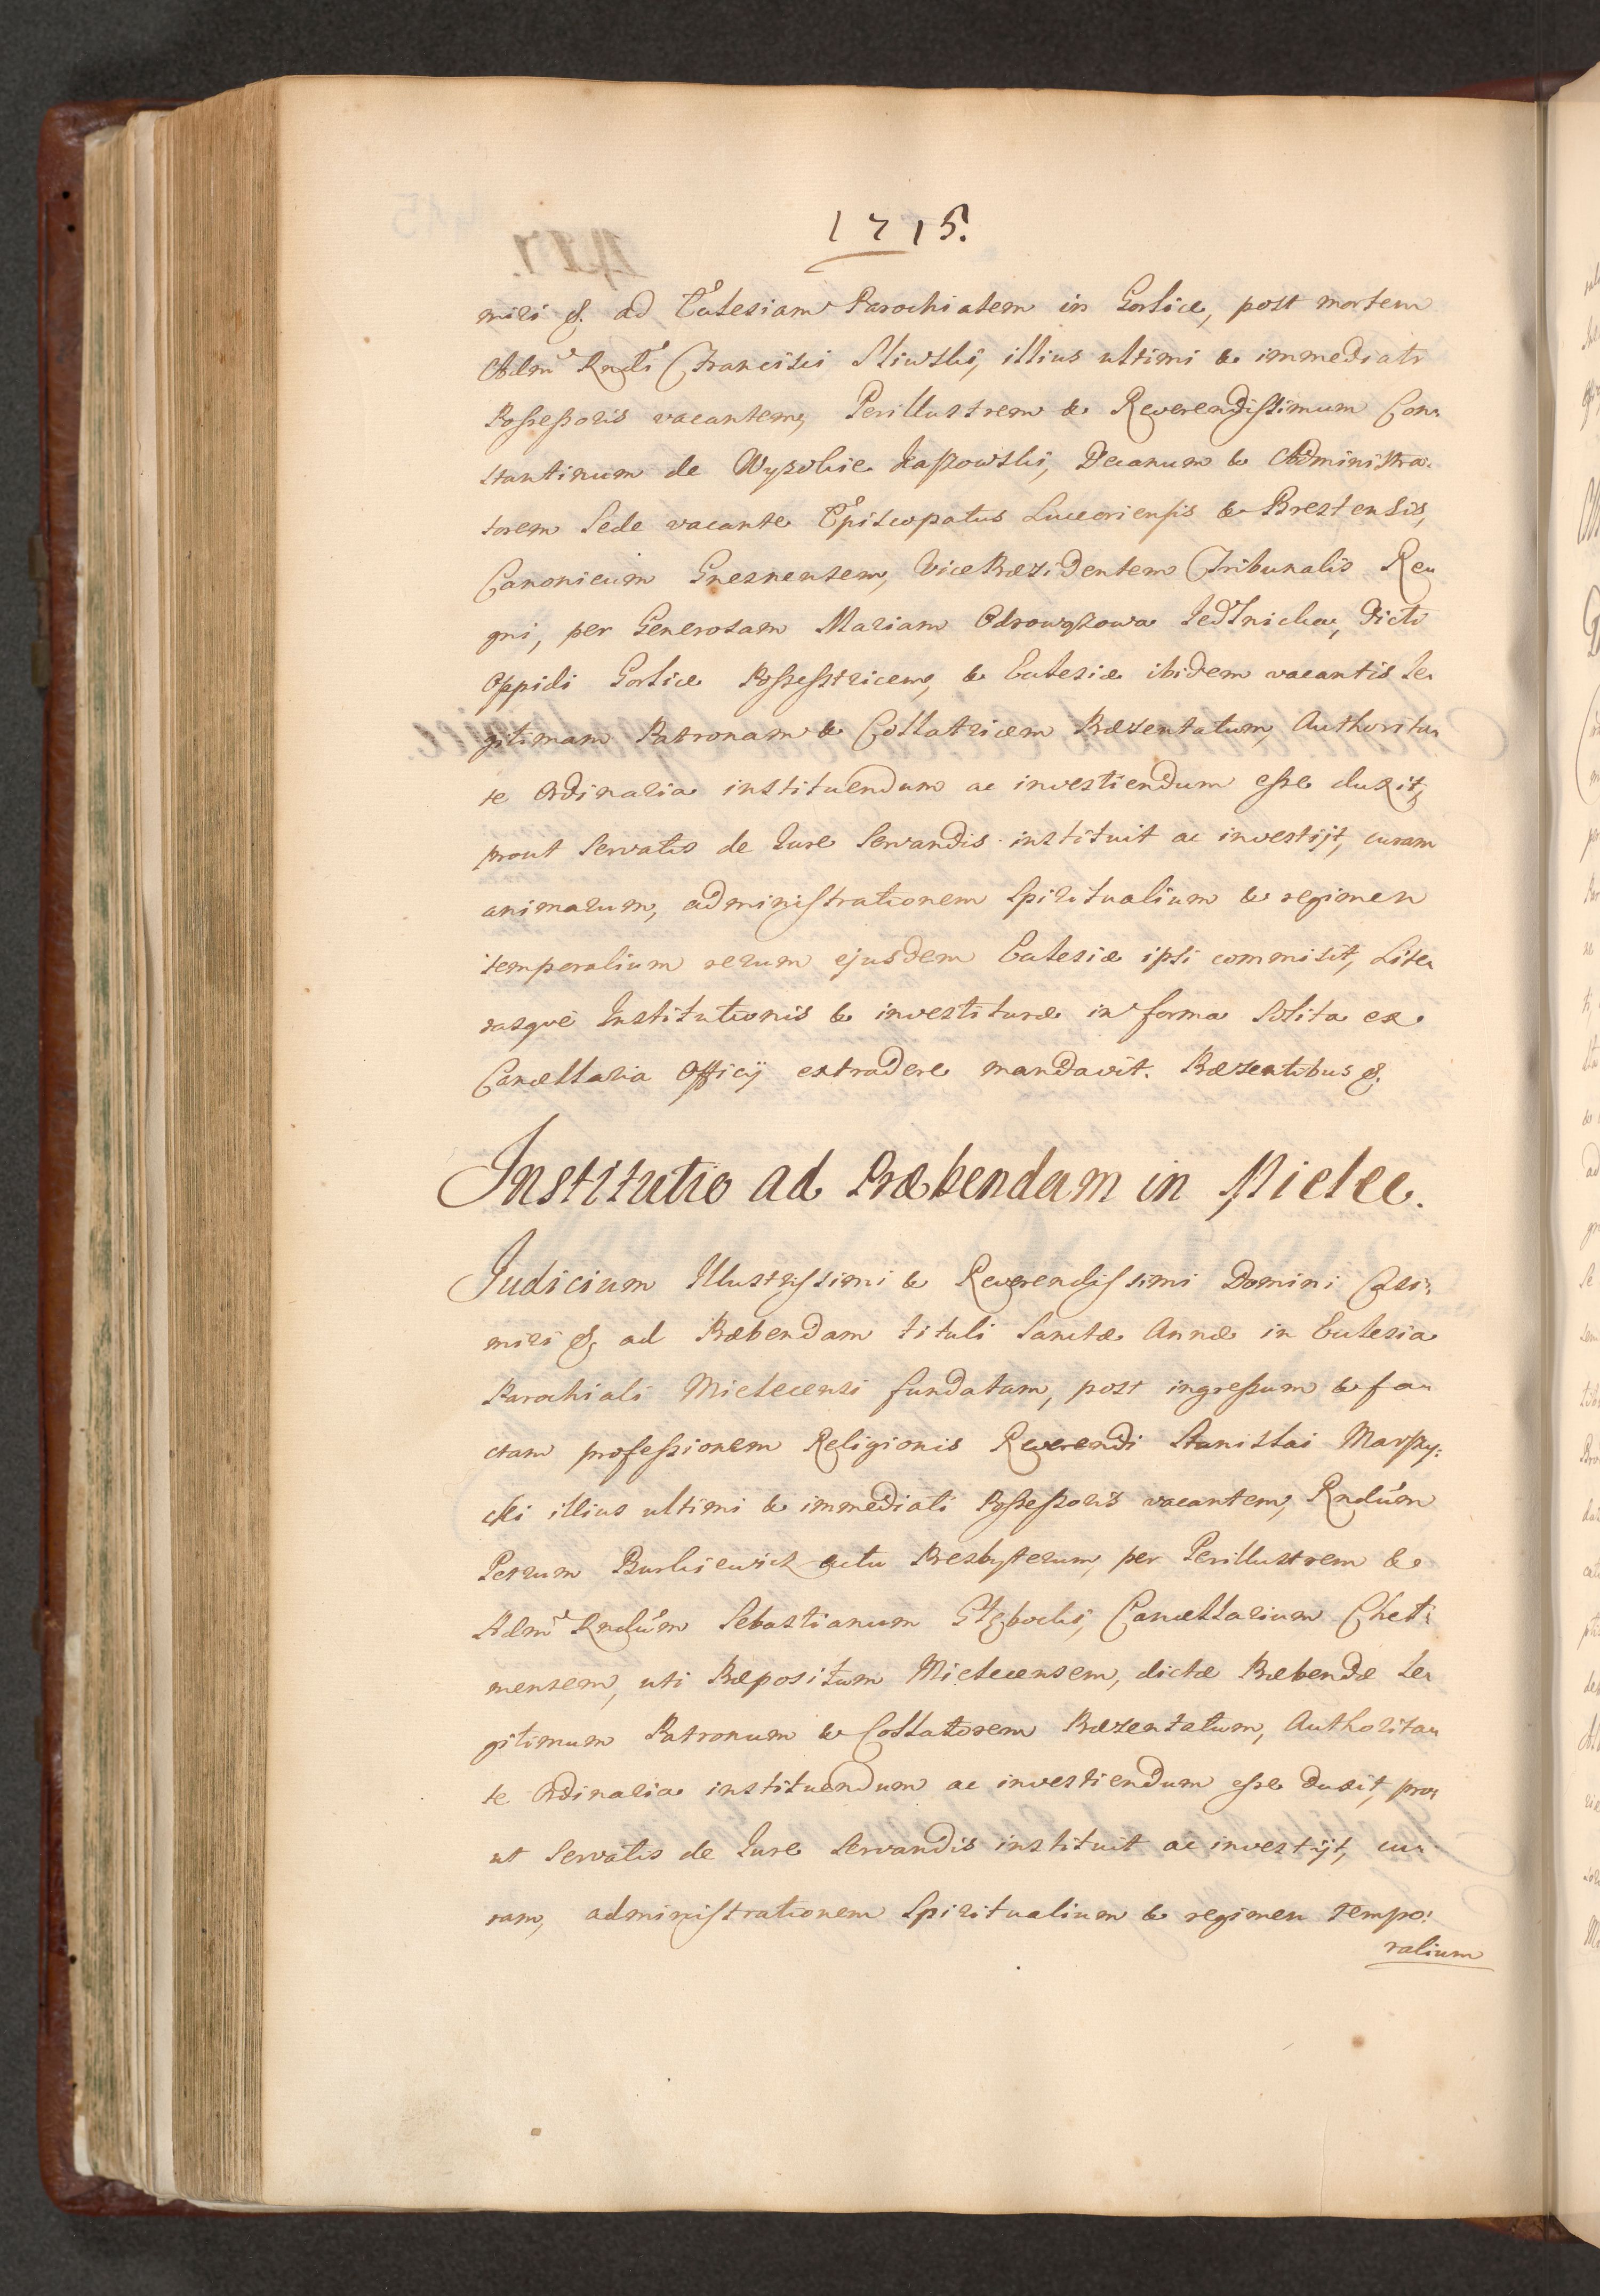 1715.
miri &. ad Ecclesiam Parochialem in Gorlice, post mortem
Adm Rndi Francisci Sliwski, illius ultimi & immediati
Possessoris vacantem, Perillustrem & Reverendissimum Con-
stantinum de Wysokie Kaszowski, Decanum & Administra-
torem Sede vacante Episcopatus Luceoriensis & Brestensis,
Canonicum Gnesnensem, Vice Præsidentem Tribunalis Re-
gni, per Generosam Mariam Odrowążowa Sedlnicka, dicti
Oppidi Gorlice Possessricem, & Ecclesiæ ibidem vacantis Le-
gitimam Patronam & Collatricem Præsentatum, Authorita-
te Ordinaria instituendum ac investiendum esse duxit,
prout servatis de Jure servandis instituit ac investijt, curam
animarum, administrationem Spiritualium & regimen
temporalium rerum ejusdem Ecclesiæ ipsi commisit, Lite-
rasque Institutionis & investituræ in forma solita ex
Cancellaria Officij extradere mandavit. Præsentibus &.
Institutio ad Præbendam in Mielec.
Judicium Illustrissimi & Reverendissimi Domini Casi-
miri &. ad Præbendam tituli Sanctæ Annæ in Ecclesia
Parochiali Mielecensi fundatam, post ingressum & fa-
ctam professionem Religionis Reverendi Stanislai Marszy-
cki illius ultimi & immediati Possessoris vacantem, Rndum
Petrum Burkiewicz actu Presbyterum, per Perillustrem &
Adm Rndum Sebastianum Głębocki, Cancellarium Chel-
mensem, uti Præpositum Mielecensem, dictæ Præbendæ Le-
gitimum Patronum & Collatorem Præsentatum, Authorita-
te Ordinaria instituendum ac investiendum esse duxit, pro-
ut servatis de Jure servandis instituit ac investijt, cu-
ram, administrationem Spiritualium & regimen tempo-
ralium